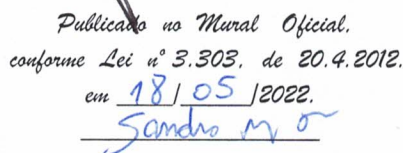 Publicado no Mural Oficial,
conforme Lei nº 3.303, de 20.4.2012.
em 18/05/2022.
Sandro M